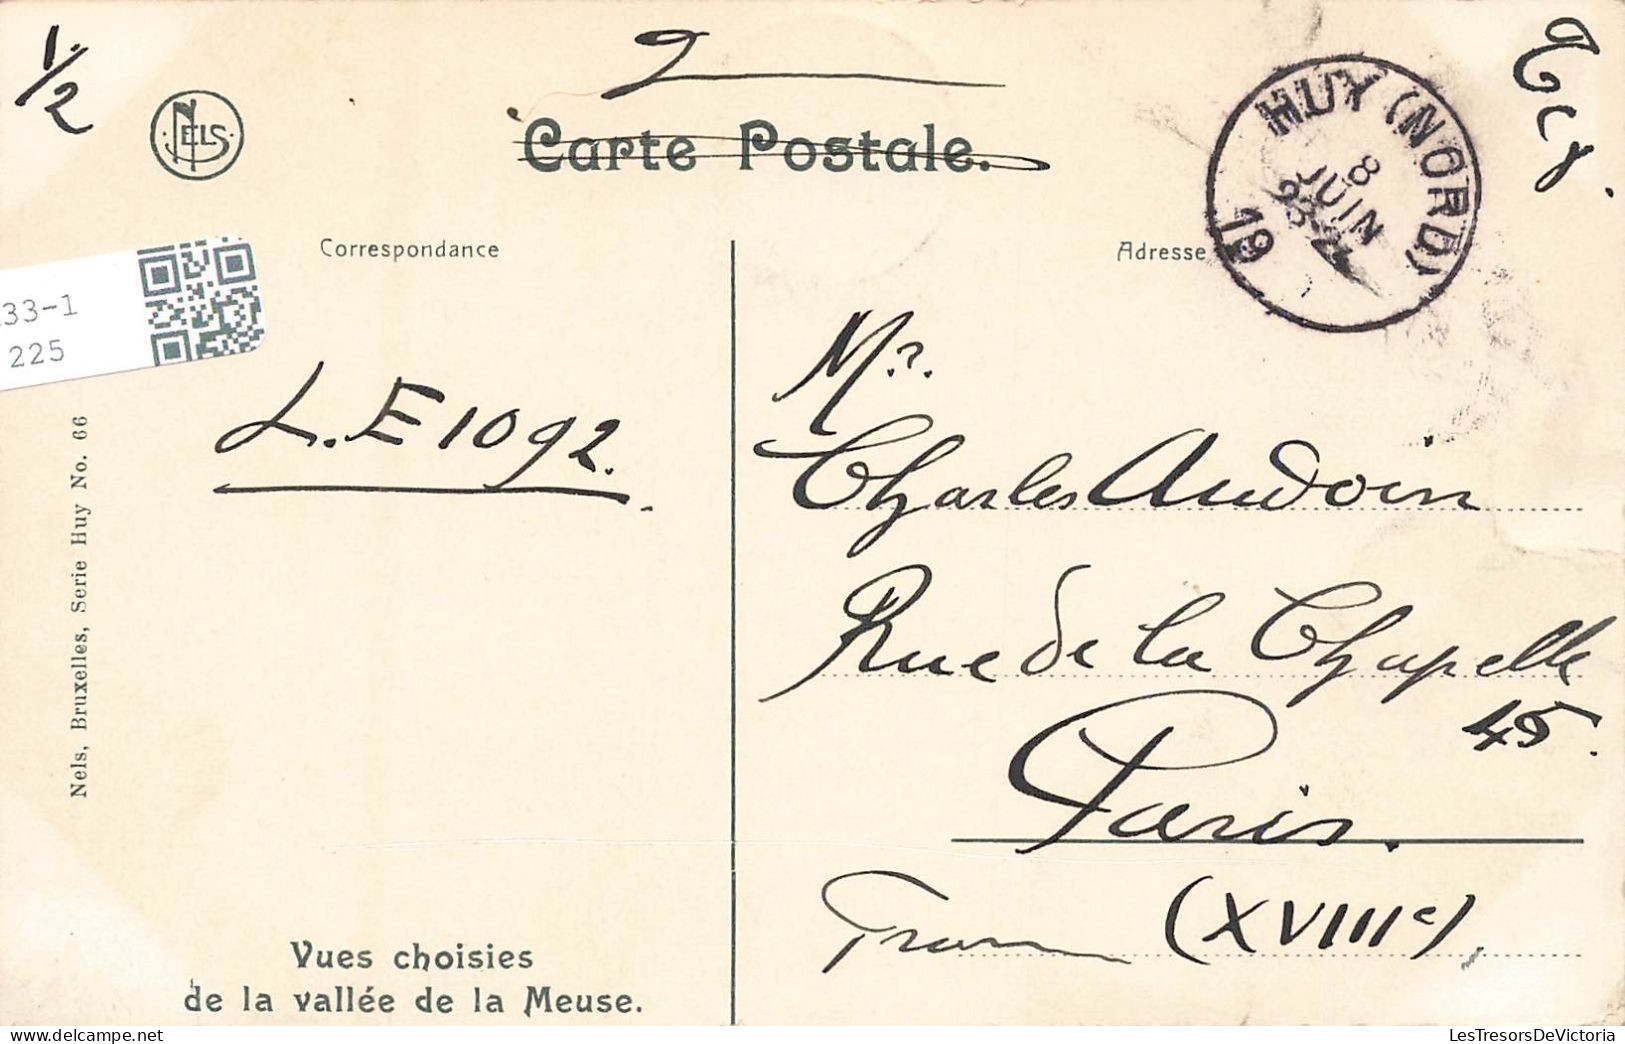 1/2
NELS
Carte Postale.
HUY (NORD)
8
JUIN
19
Tcy.
Correspondance
Adresse
33-1
225
L.E 1092.
Mr.
Charles Audoin
Rue de la Chapelle
45.
Paris.
(XVIIIe)
Nels, Bruxelles, Serie Huy No. 66
Vues choisies
de la vallée de la Meuse.
LesTresorsDeVictoria